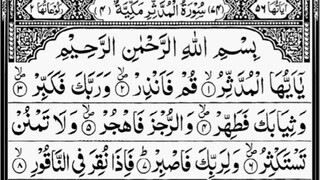 اٰيَاتُهَا ٥٦ (٧٤) سُوْرَةُ الْمُدَّثِّرِ مَكِّيَّةٌ (٤) رُكُوْعَاتُهَا ٢
بِسْمِ اللّٰهِ الرَّحْمٰنِ الرَّحِيْمِ
يٰۤاَيُّهَا الْمُدَّثِّرُ ۙ﴿١﴾ قُمْ فَاَنْذِرْ ۪ۙ﴿٢﴾ وَرَبَّكَ فَكَبِّرْ ۪ۙ﴿٣﴾
وَثِيَابَكَ فَطَهِّرْ ۪ۙ﴿٤﴾ وَالرُّجْزَ فَاهْجُرْ ۪ۙ﴿٥﴾ وَلَا تَمْنُنْ
تَسْتَكْثِرُ ۪ۙ﴿٦﴾ وَلِرَبِّكَ فَاصْبِرْ ؕ﴿٧﴾ فَاِذَا نُقِرَ فِي النَّاقُوْرِ ۙ﴿٨﴾